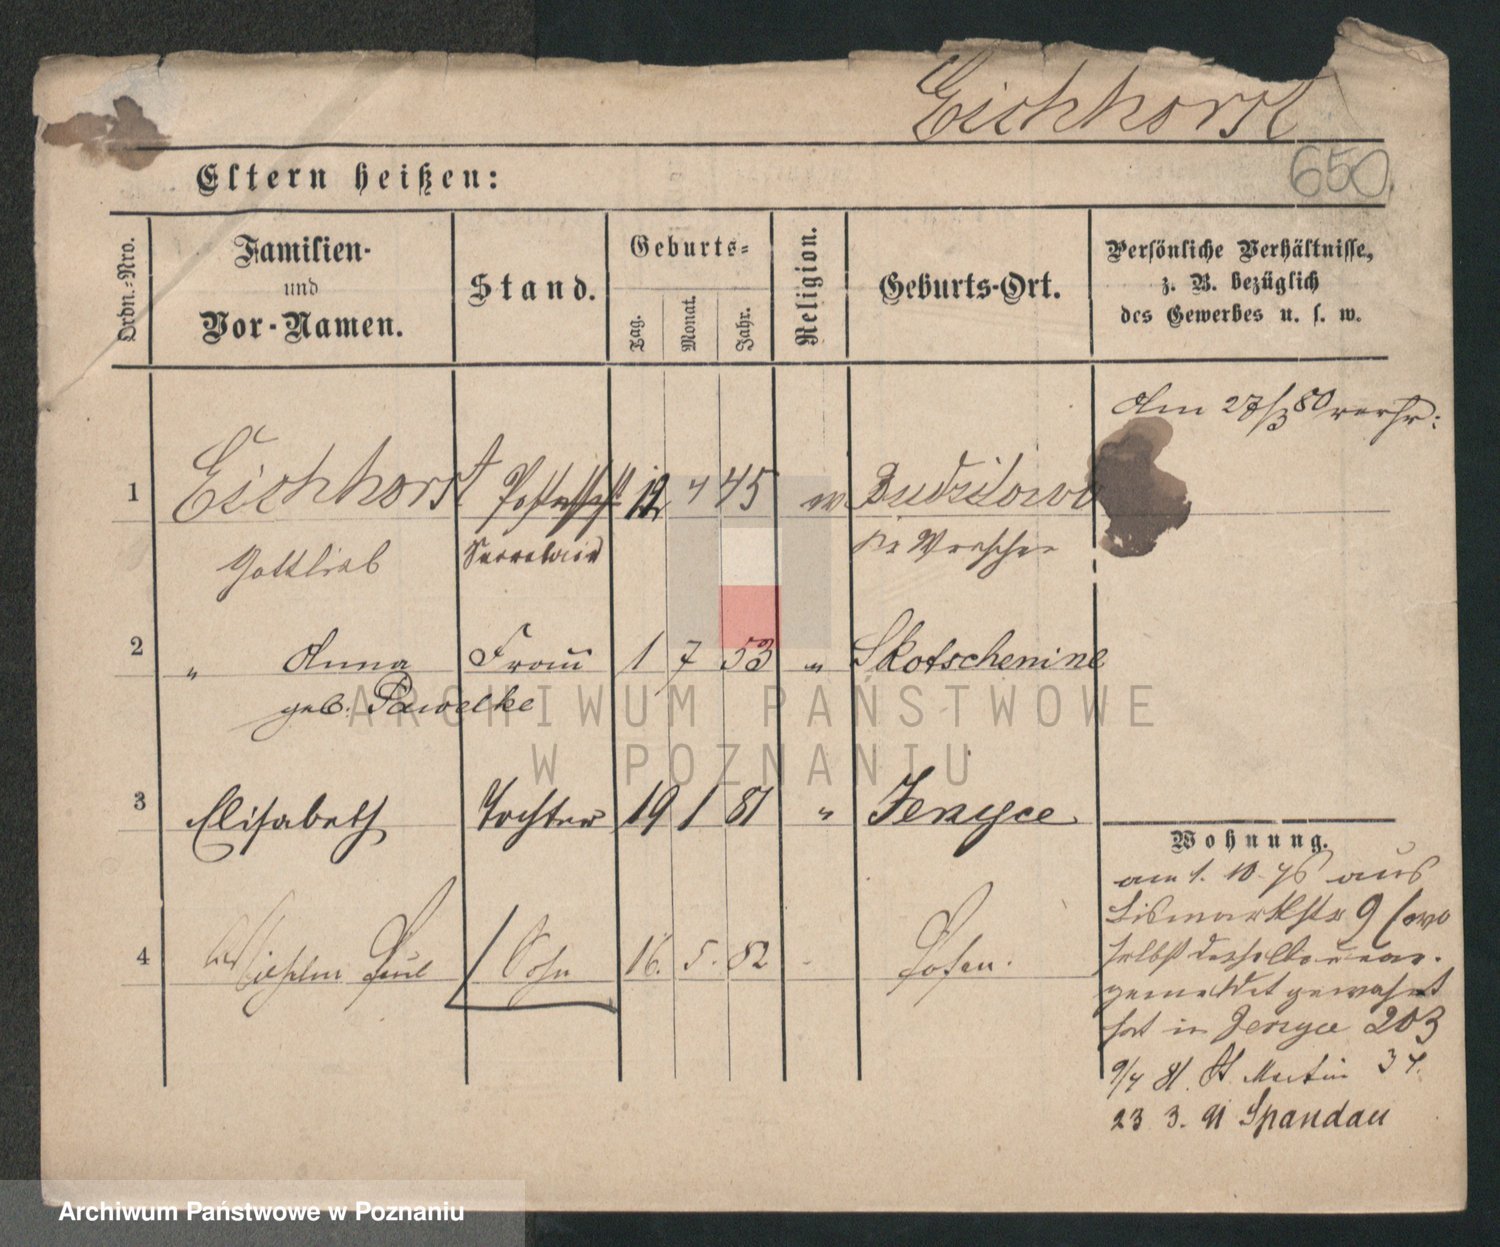 Eichhorst
650.
Eltern heißen:
Ordn.-Nro.
Familien-
und
Vor-Namen.
Stand.
Geburts-
Tag.
Monat.
Jahr.
Religion.
Geburts-Ort.
Persönliche Verhältnisse,
z. B. bezüglich
des Gewerbes u. s. w.
Am 27/3 80 verhr:
1 Eichhorst 12 4 45 ev Budzilowo
Gottlieb Secretair Kr Wreschen
2 " Anna Frau 1 7 53 " Skotschenine
geb. Pawelke
3 Elisabeth Tochter 19 1 81 " Jerzyce
4 Wilhelm Paul Sohn 16. 5. 82 - Posen.
Wohnung.
am 1. 10 76 aus
Bismarkstr 9 (wo
selbst
gemeldet gewohnt
hat in Jerzyce 203
9/4 81. St. Martin 34.
23 3. 91 Spandau
ARCHIWUM PAŃSTWOWE
W POZNANIU
Archiwum Państwowe w Poznaniu